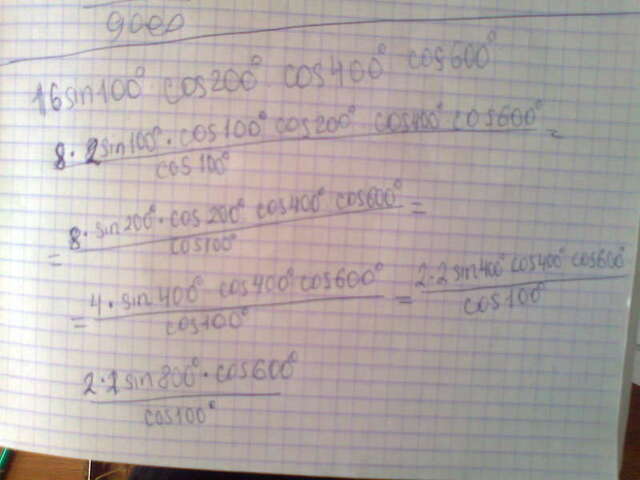 9000
16sin100° cos200° cos400° cos600°
8·2sin100°·cos100° cos200° cos400° cos600° / cos100° =
= 8·sin200°·cos200° cos400° cos600° / cos100° =
= 4·sin400° cos400° cos600° / cos100° = 2·2sin400° cos400° cos600° / cos100°
2·2sin800°·cos600° / cos100°